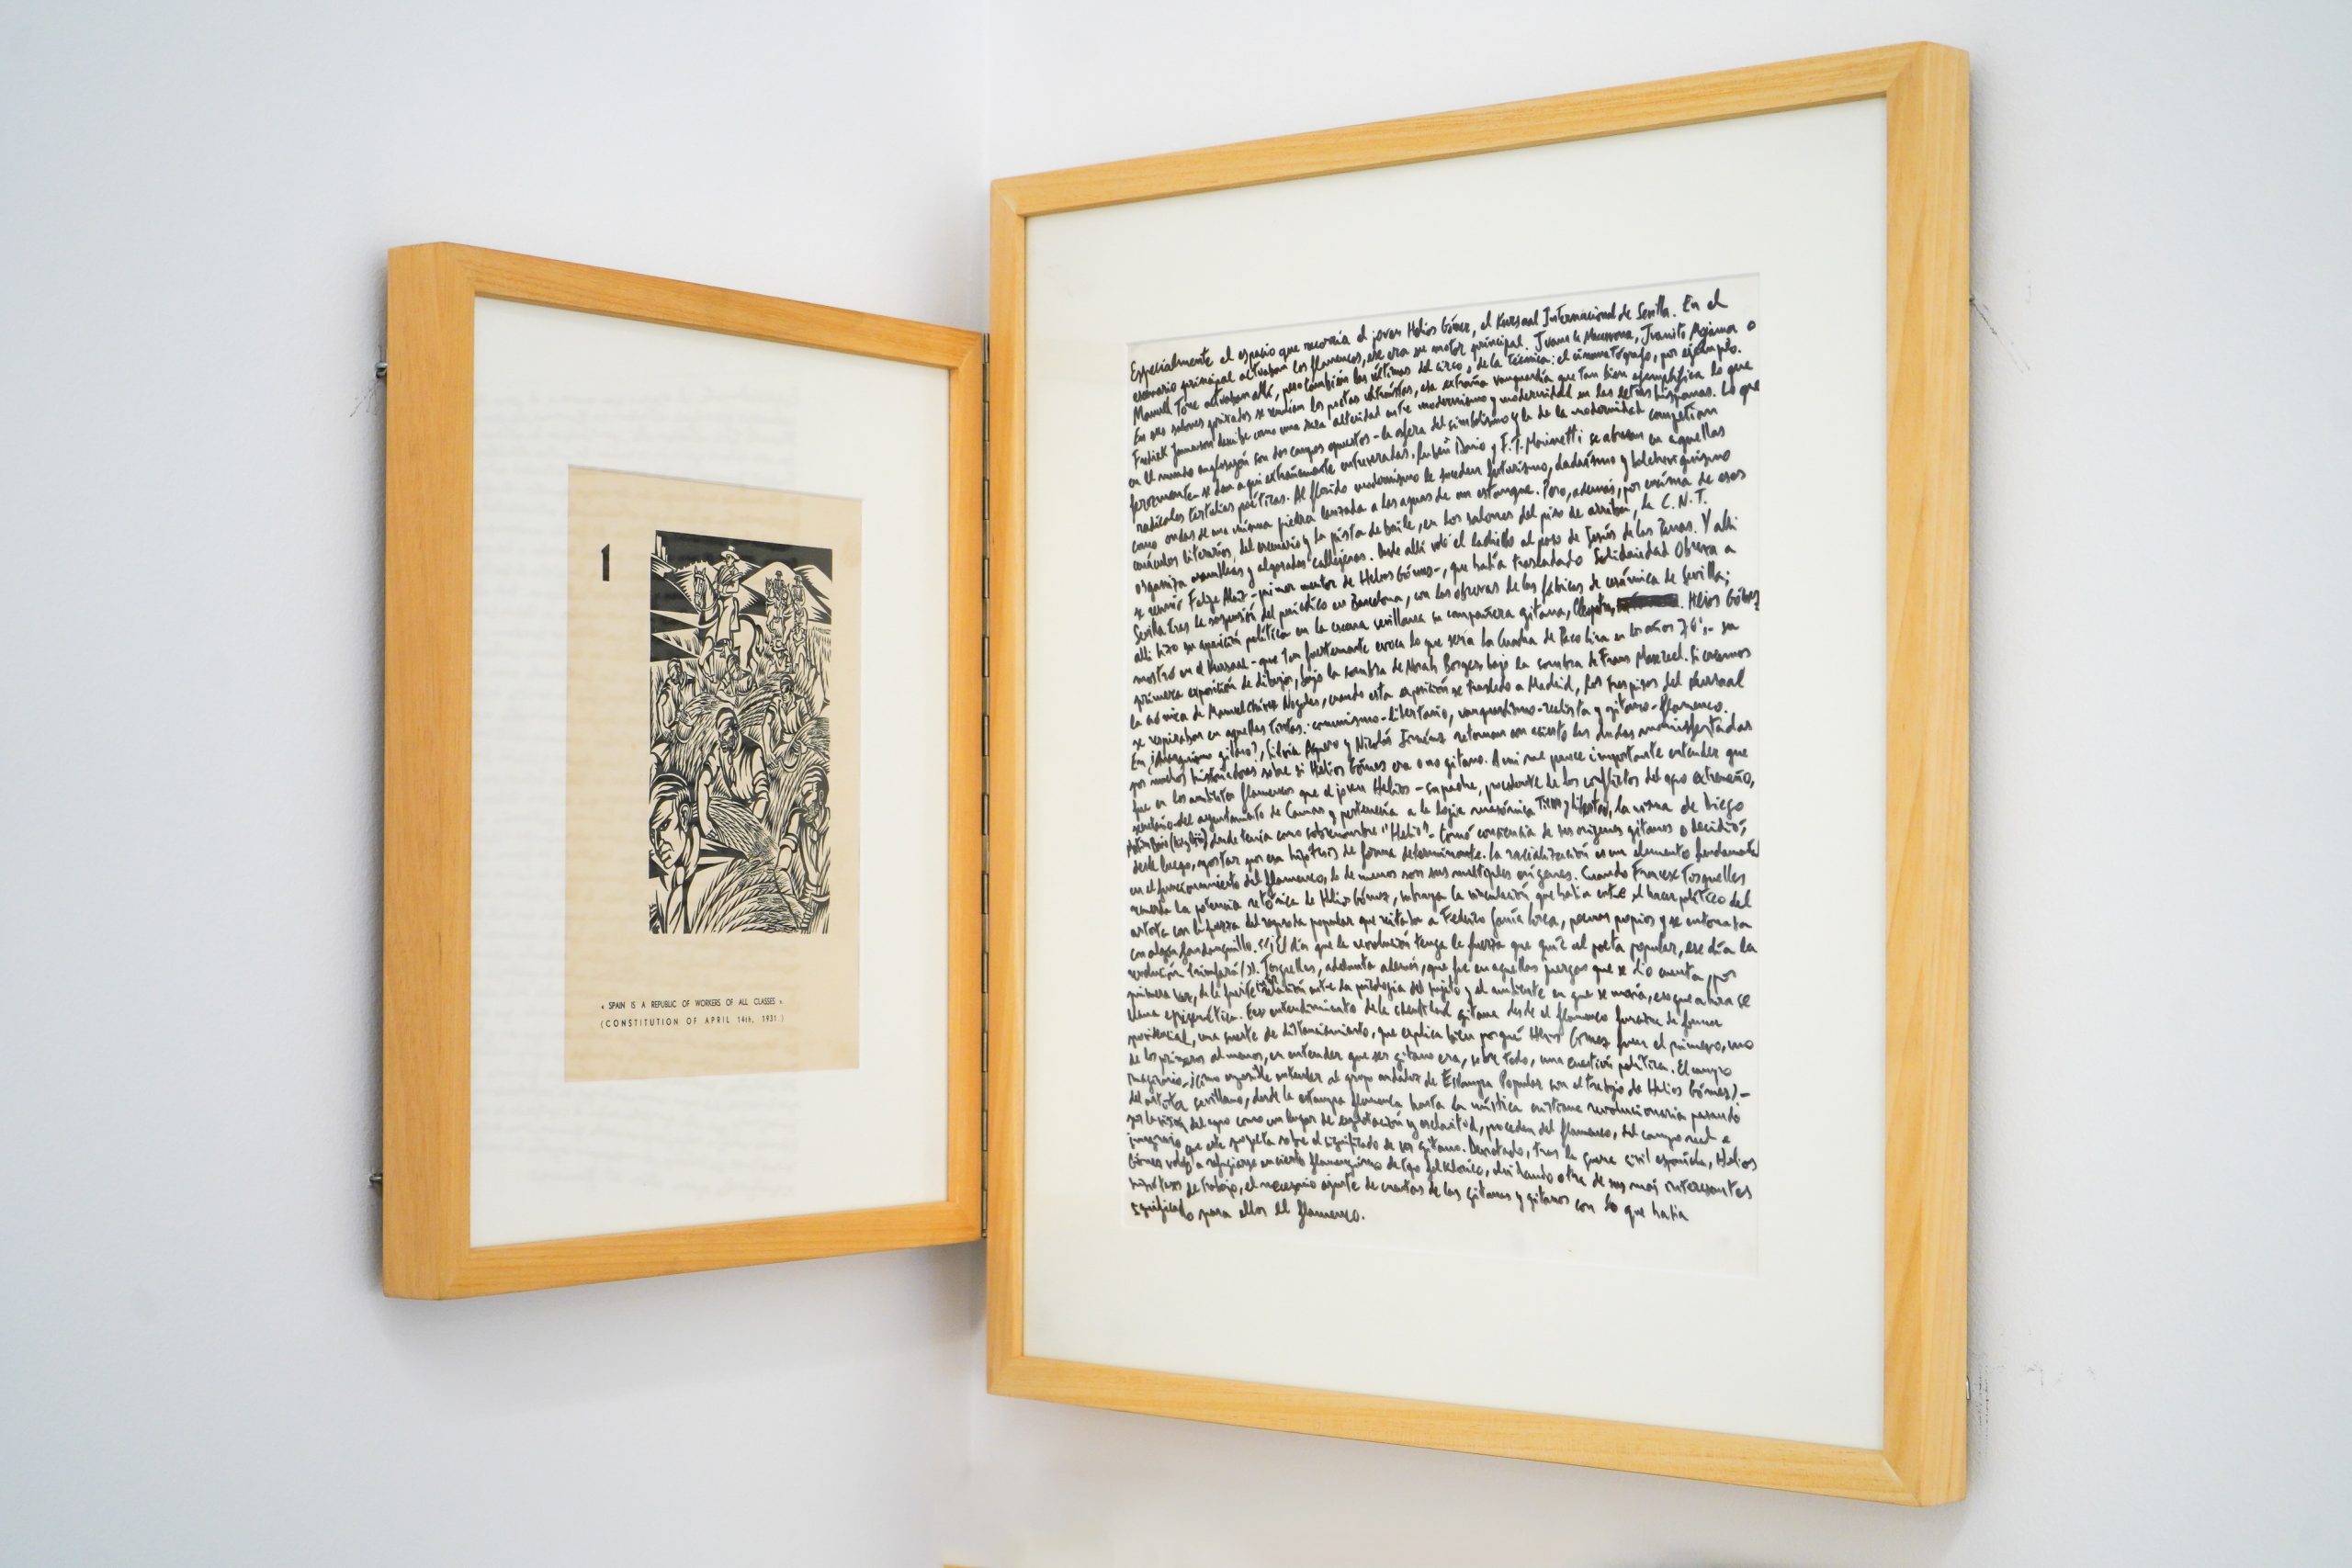 1
« SPAIN IS A REPUBLIC OF WORKERS OF ALL CLASSES »
(CONSTITUTION OF APRIL 14th, 1931.)
Especialmente el espacio que recorría el joven Helios Gómez, el Kursaal Internacional de Sevilla. En el
escenario principal actuaban los flamencos, ese era su motor principal. Juana la Macarrona, Juanito Mojama o
Manuel Torre actuaban allí, pero también las últimas del circo, de la técnica: el cinematógrafo, por ejemplo.
En sus salones privados se reunían los poetas ultraístas, esa extraña vanguardia que tan bien ejemplifica lo que
Fredick Jammeson describe como una rara alteridad entre modernismo y modernidad en las letras hispanas. Lo que
en el mundo anglosajón son dos campos opuestos - la esfera del simbolismo y la de la modernidad competían
ferozmente - se dan aquí extrañamente entreveradas. Rubén Darío y F.T. Marinetti se abrazan en aquellas
radicales tertulias poéticas. Al florido modernismo le suceden futurismo, dadaísmo y bolcheviquismo
como ondas de una misma piedra lanzada a las aguas de un estanque. Pero, además, por encima de esos
cenáculos literarios, del escenario y la pista de baile, en los salones del piso de arriba, la C.N.T.
organiza asambleas y algaradas callejeras. Desde allí voló el ladrillo al paso de Jesús de las Penas. Y allí
se reunió Felipe Alaiz - primer mentor de Helios Gómez -, que había trasladado Solidaridad Obrera a
Sevilla tras la suspensión del periódico en Barcelona, con las obreras de las fábricas de cerámica de Sevilla;
allí hizo su aparición política en la escena sevillana su compañera gitana, . Helios Gómez
mostró en el Kursaal - que tan fuertemente evoca lo que sería la Cuadra de Paco Lira en los años 70 - su
primera exposición de dibujos, bajo la sombra de Norah Borges, bajo la sombra de Frans Masereel. Si creemos
la crónica de Manuel Chaves Nogales, cuando esta exposición se trasladó a Madrid, los tres pisos del Kursaal
se respiraban en aquellas tintas: comunismo-libertario, vanguardismo-realista y gitano-flamenco.
En ¿Anarquismo gitano?, Silvia Agüero y Nicolás Jiménez retoman con acierto las dudas manifestadas
por muchos historiadores sobre si Helios Gómez era o no gitano. A mí me parece importante entender que
fue en los ambientes flamencos que el joven Helios - su padre, procedente de los conflictos del agro extremeño,
secretario del ayuntamiento de Camas y pertenecía a la logia masónica Tierra y Libertad, la misma de Diego
donde tenía como sobrenombre "Helio" - tomó conciencia de sus orígenes gitanos o decidió,
desde luego, apostar por esa hipótesis de forma determinante. La racialización es un elemento fundamental
en el funcionamiento del flamenco, lo de menos son sus múltiples orígenes. Cuando Francesc Tosquelles
recuerda la potencia retórica de Helios Gómez, subraya la vinculación que había entre el hacer político del
artista con la fuerza del rapsoda popular que recitaba a Federico García Lorca, poemas propios y se entonaba
con algún fandanguillo. «¡El día que la revolución tenga la fuerza que guía al poeta popular, ese día la
revolución triunfará!». Tosquelles, adelanta además, que fue en aquellas juergas que se dio cuenta, por
primera vez, de la fuerte relación entre la patología del sujeto y el ambiente en que se movía, eso que ahora se
llama epigenética. Ese entendimiento de la identidad gitana desde el flamenco funciona de forma
una suerte de distanciamiento, que explica bien porqué Helios Gómez fuera el primero, uno
de los primeros al menos, en entender que ser gitano era, sobre todo, una cuestión política. El campo
imaginario - ¡cómo imposible entender al grupo andaluz de Estampa Popular sin el trabajo de Helios Gómez! -
del artista sevillano, desde la estampa flamenca hasta la mística cristiana revolucionaria pasando
por la visión del agro como un lugar de explotación y esclavitud, proceden del flamenco, del campo real e
imaginario que este proyecta sobre el significado de ser gitano. Derrotado, tras la guerra civil española, Helios
Gómez volvió a refugiarse en cierto flamenquismo de tipo folklórico, olvidando otra de sus más interesantes
hipótesis de trabajo, el necesario ajuste de cuentas de las gitanas y gitanos con lo que había
significado para ellos el flamenco.